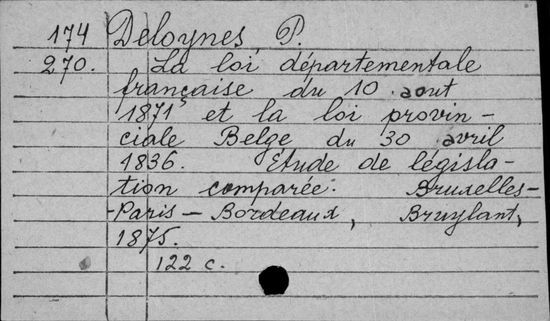 174 Deloynes P.
270. La loi départementale
française du 10 aout
1871 et la loi provin-
ciale Belge du 30 avril
1836. Etude de législa-
tion comparée. Bruxelles-
-Paris-Bordeaux, Bruylant,
1875.
122 c.